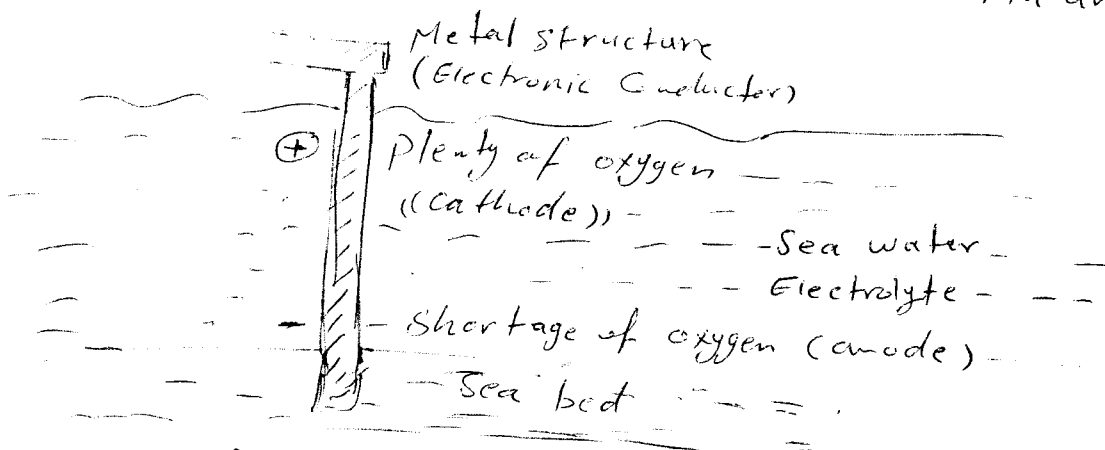 Metal structure
(Electronic Conductor)
+ Plenty of oxygen
((Cathode))
Sea water
Electrolyte
- Shortage of oxygen (anode)
Sea bed